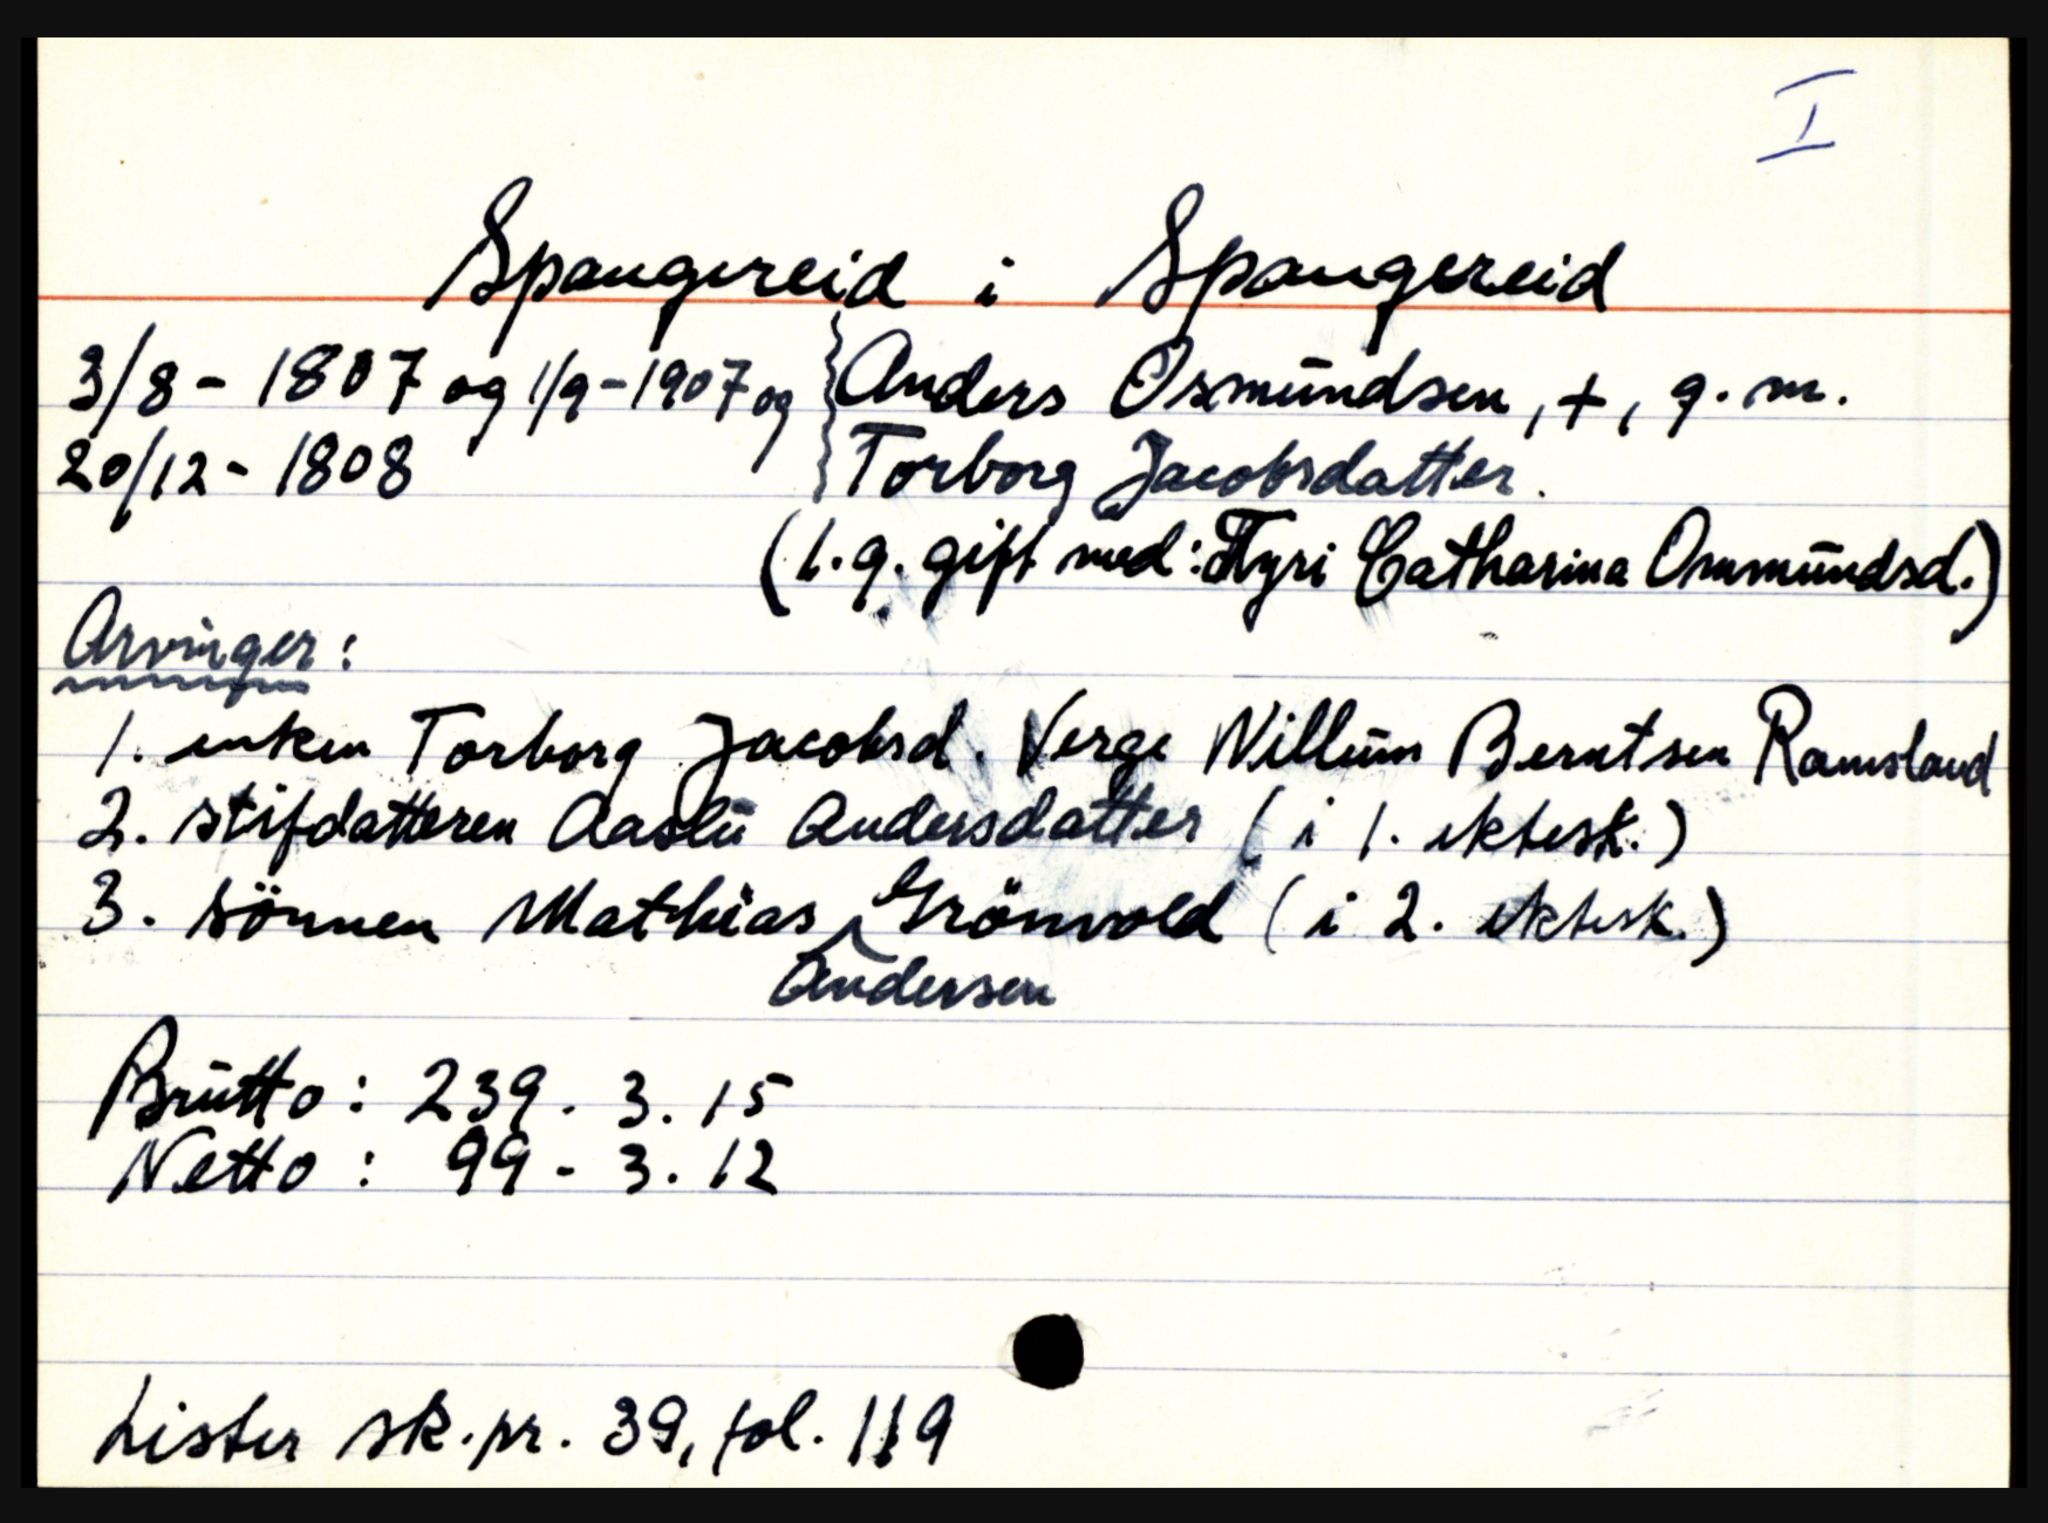 I
Spangereid i Spangereid
3/8 - 1807 og 1/9 - 1907 og } Anders Osmundsen, +, g. m.
20/12 - 1808 } Torborg Jacobsdatter.
(1. g. gift med: Tyri Catharina Ommundsd.)
Arvinger:
1. enken Torborg Jacobsd. Verge Willum Berntsen Ramsland
2. stifdatteren Aaslu Andersdatter (i 1. ektesk.)
3. sönnen Mathias ^ Grönvold (i 2. ektesk.)
Andersen
Brutto: 239 - 3. 15
Netto: 99 - 3. 12
Lister sk. pr. 39, fol. 119